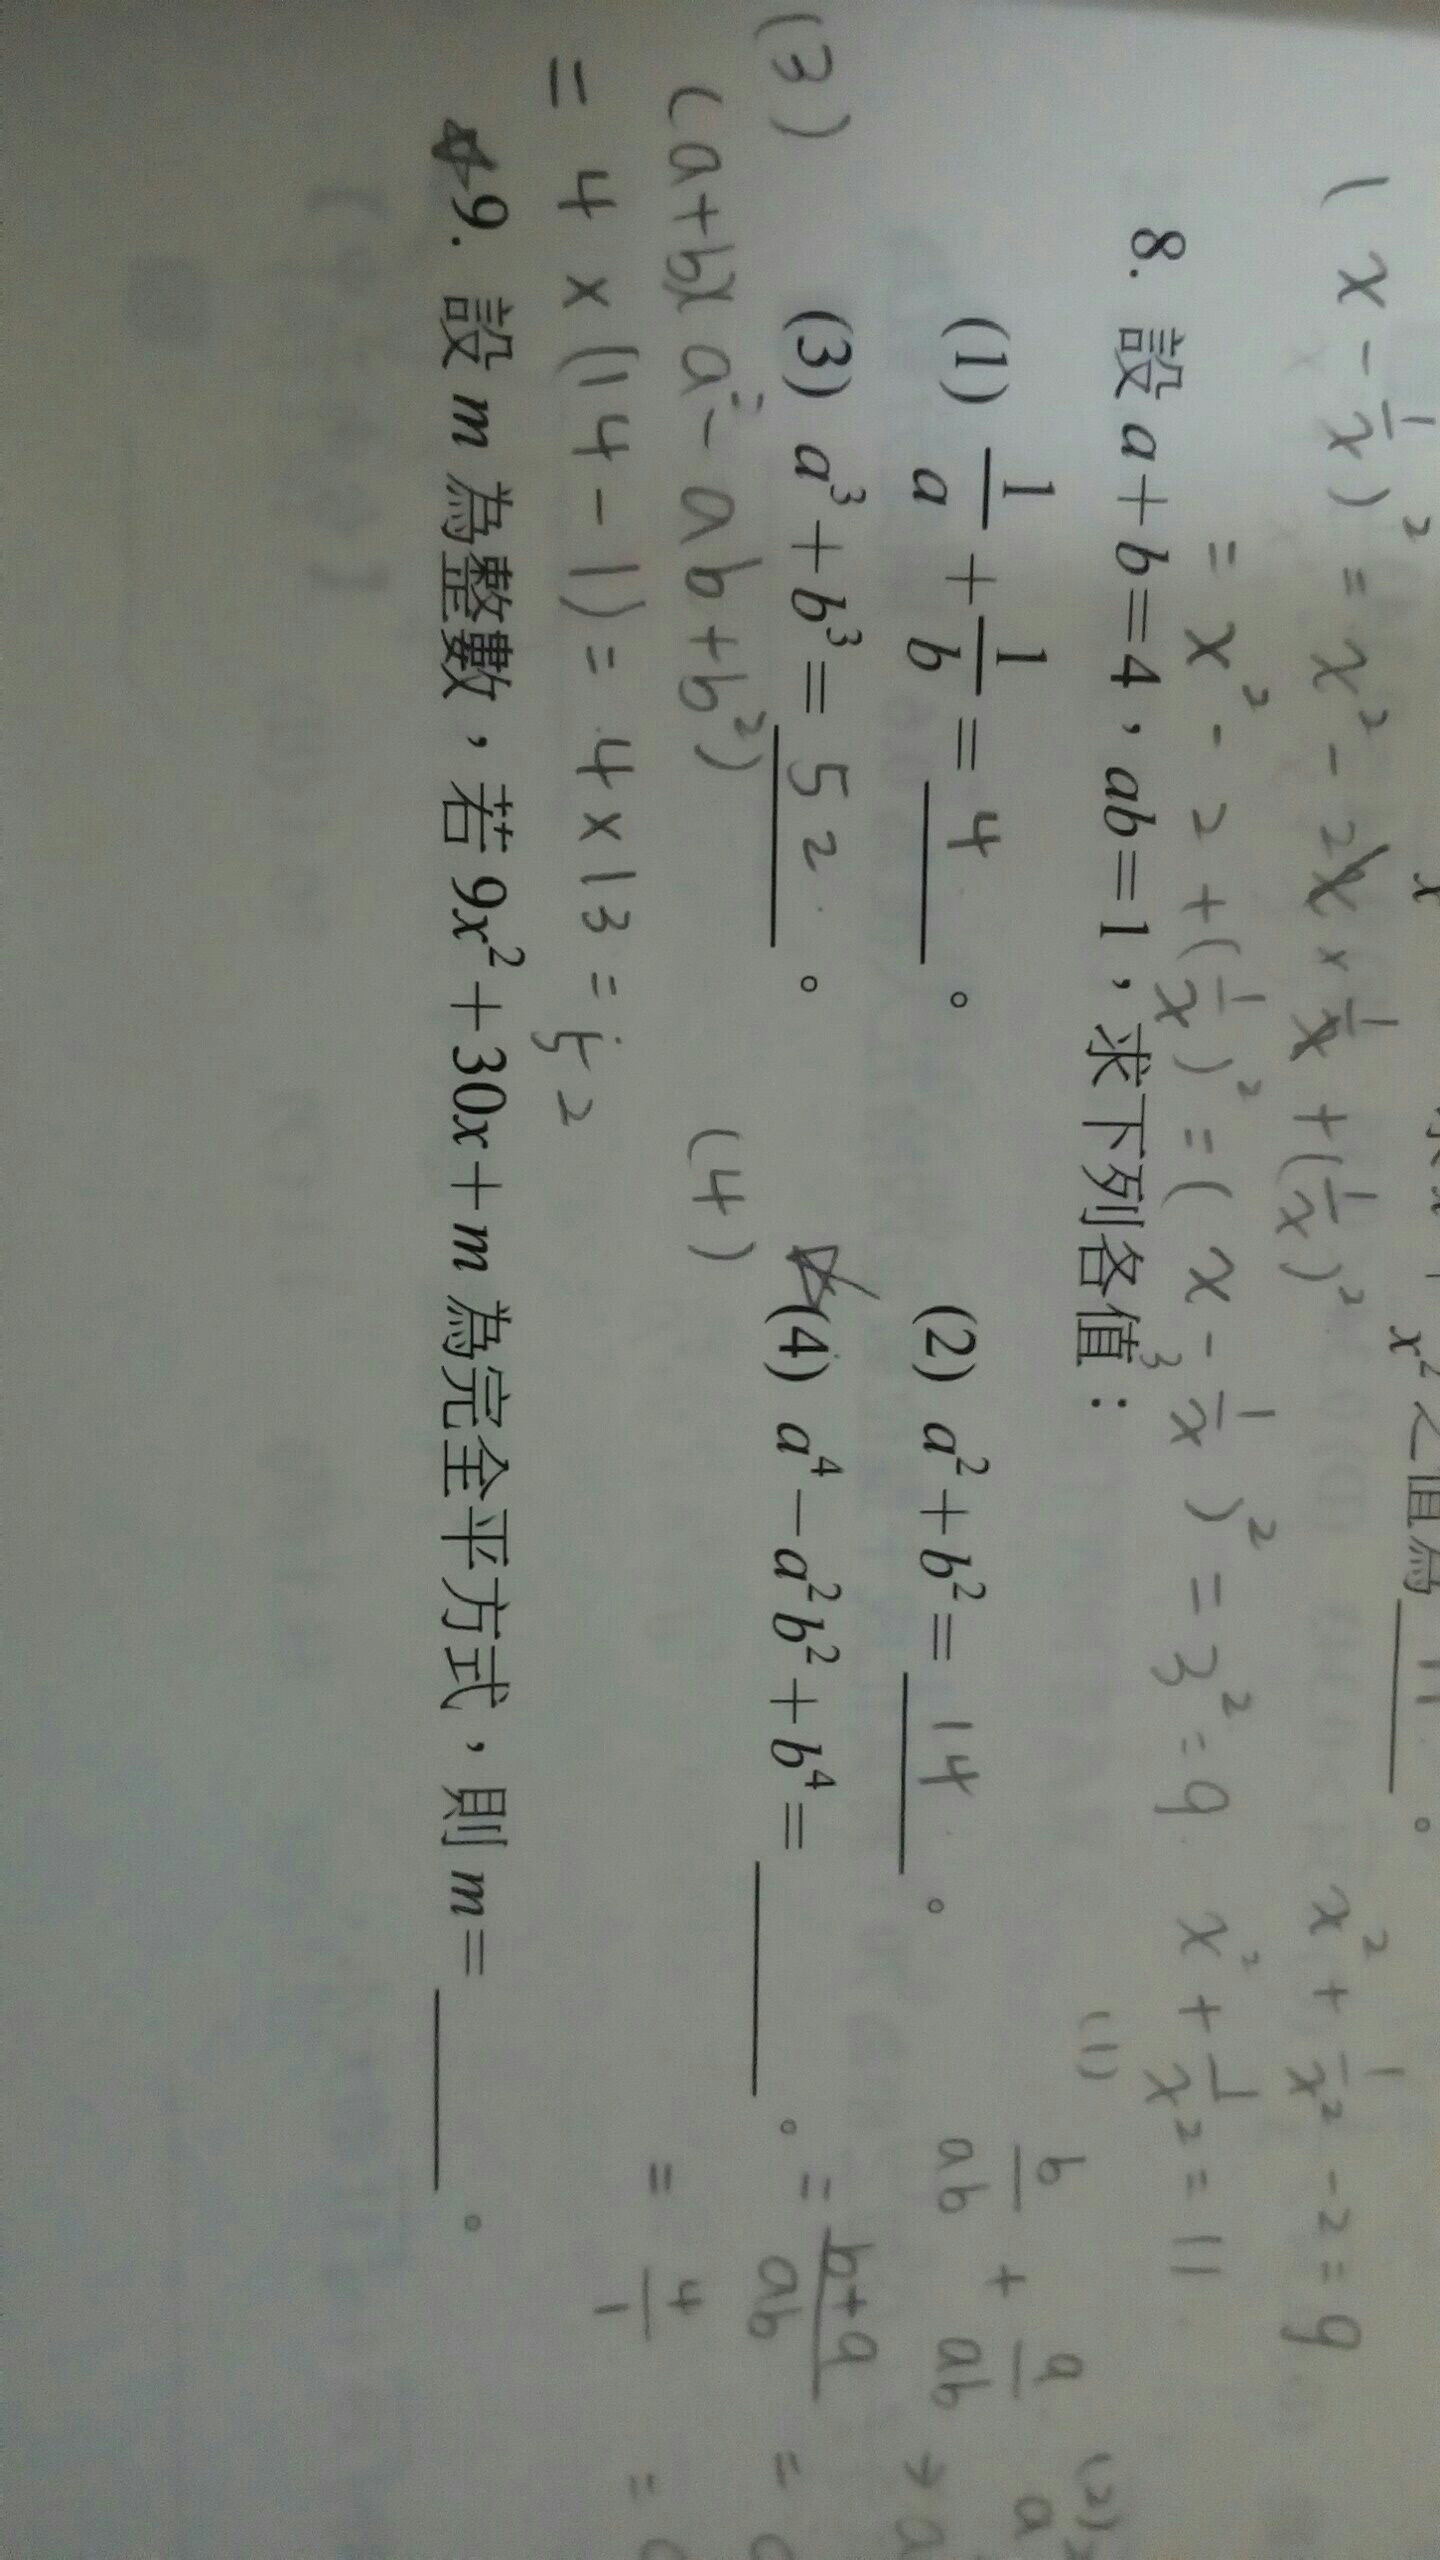 x² 之值為 11 。
(x - 1/x)² = x² - 2x × 1/x + (1/x)²
x² + 1/x² - 2 = 9
= x² - 2 + (1/x)² = (x - 1/x)² = 3² = 9
x² + 1/x² = 11
8. 設 a+b=4,ab=1,求下列各值:
(1) 1/a + 1/b = 4 。
(2) a²+b²= 14 。
(3) a³+b³= 52 。
(4) a⁴-a²b²+b⁴= 。
(1) b/ab + a/ab
= b+a/ab
= 4/1
(2)
(3)
(a+b)(a²-ab+b²)
(4)
= 4×(14-1)=4×13=52
9. 設 m 為整數,若 9x²+30x+m 為完全平方式,則 m= 。